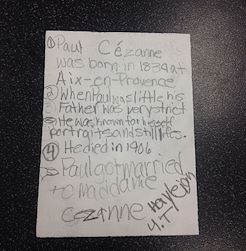 ① Paul Cézanne
was born in 1839 at
Aix-en-Provence
② When Paul was little his
Father was very strict
③ He was known for his self
portraits and still lifes.
④ He died in 1906
⑤ Paul got married
to madame
Cezanne